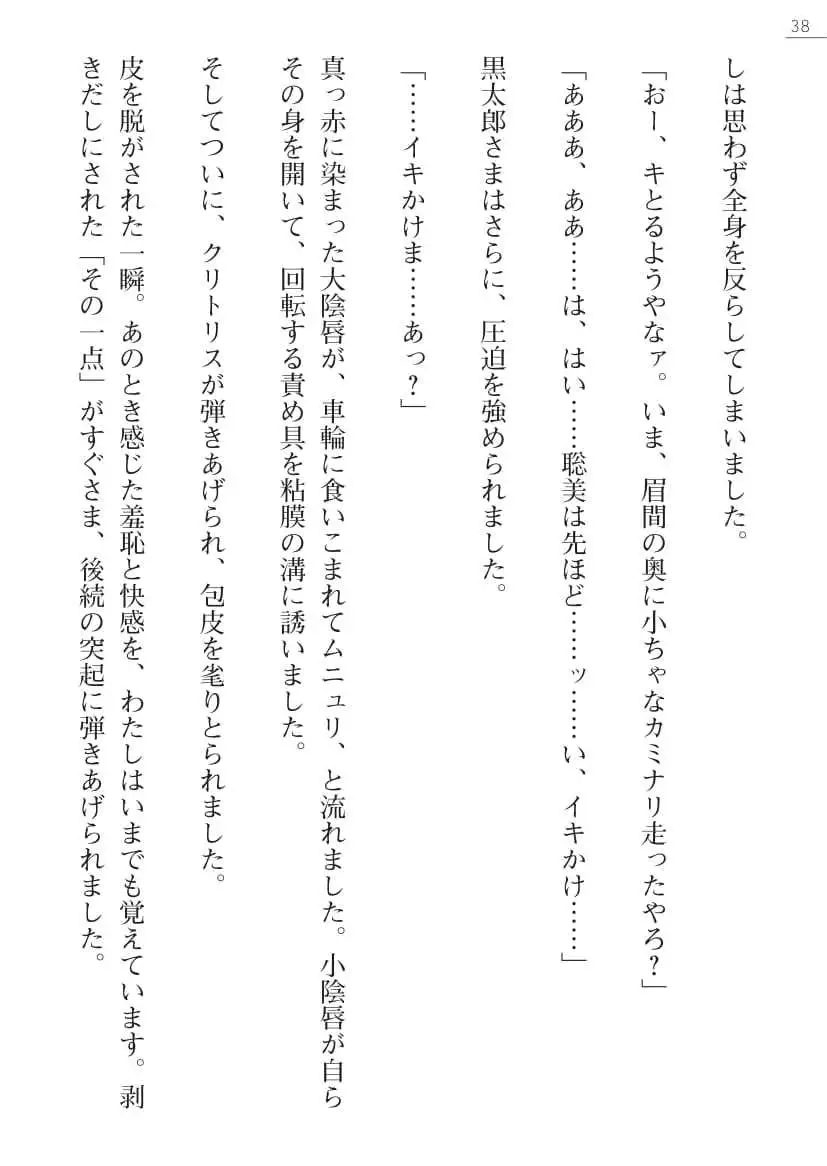 38
しは思わず全身を反らしてしまいました。
「おー、キとるようやなァ。いま、眉間の奥に小ちゃなカミナリ走ったやろ?」
「あああ、ああ……は、はい……聡美は先ほど……ッ……い、イキかけ……」
黒太郎さまはさらに、圧迫を強められました。
「……イキかけま……あっ?」
真っ赤に染まった大陰唇が、車輪に食いこまれてムニュリ、と流れました。小陰唇が自ら
その身を開いて、回転する責め具を粘膜の溝に誘いました。
そしてついに、クリトリスが弾きあげられ、包皮を毟りとられました。
皮を脱がされた一瞬。あのとき感じた羞恥と快感を、わたしはいまでも覚えています。剥
きだしにされた「その一点」がすぐさま、後続の突起に弾きあげられました。